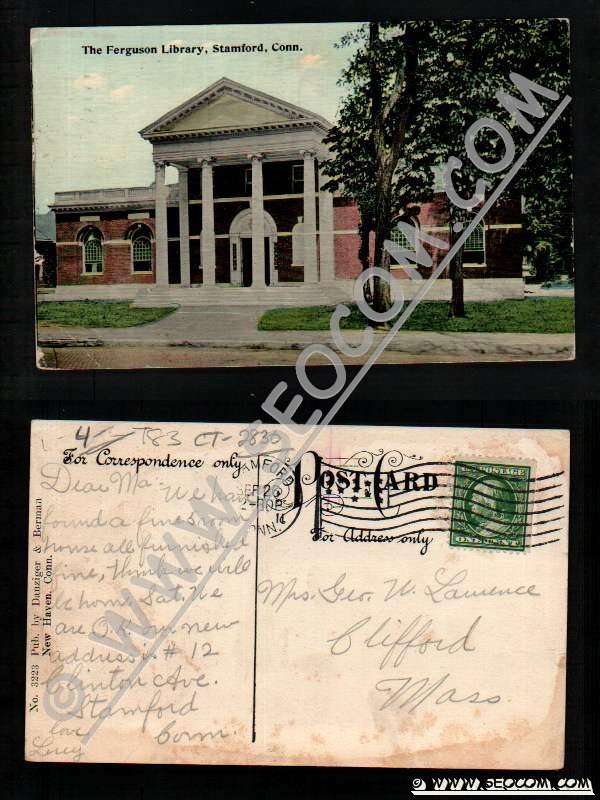 The Ferguson Library, Stamford, Conn.
WWW.SEOCOM.COM
4 T83 CT-2835
For Correspondence only
POST CARD
For Address only
STAMFORD
CONN
U.S. POSTAGE
ONE CENT
No. 3223 Pub. by Danziger & Berman
New Haven, Conn.
Dear Ma: We have
found a fine room
house all furnished
fine, think we will
be home Sat. We
are O.K. our new
address is # 12
Clinton Ave.
Stamford
love Conn.
Lucy
Mrs. Geo. W. Lawrence
Clifford
Mass.
© WWW.SEOCOM.COM
© WWW.SEOCOM.COM